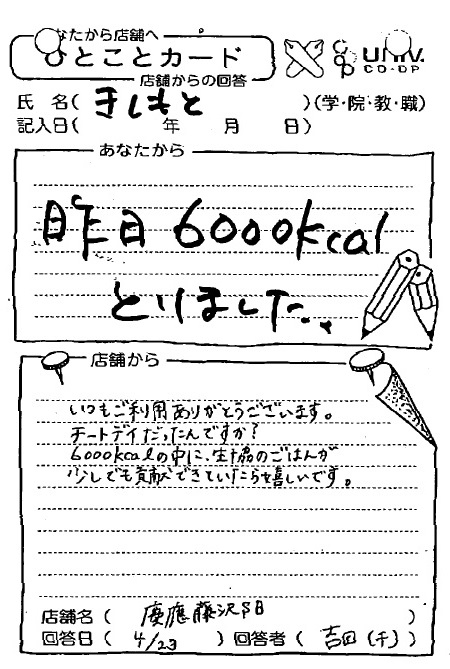 あなたから店舗へ
ひとことカード
店舗からの回答
UNIV.
CO-OP
氏 名( きしもと )(学・院・教・職)
記入日( 年 月 日)
あなたから
昨日 6000kcal
とりました、
店舗から
いつもご利用ありがとうございます。
チートデイだったんですか?
6000kcalの中に、生協のごはんが
少しでも貢献できていたら嬉しいです。
店舗名( 慶應藤沢SB )
回答日( 4/23 )回答者( 吉田(千) )